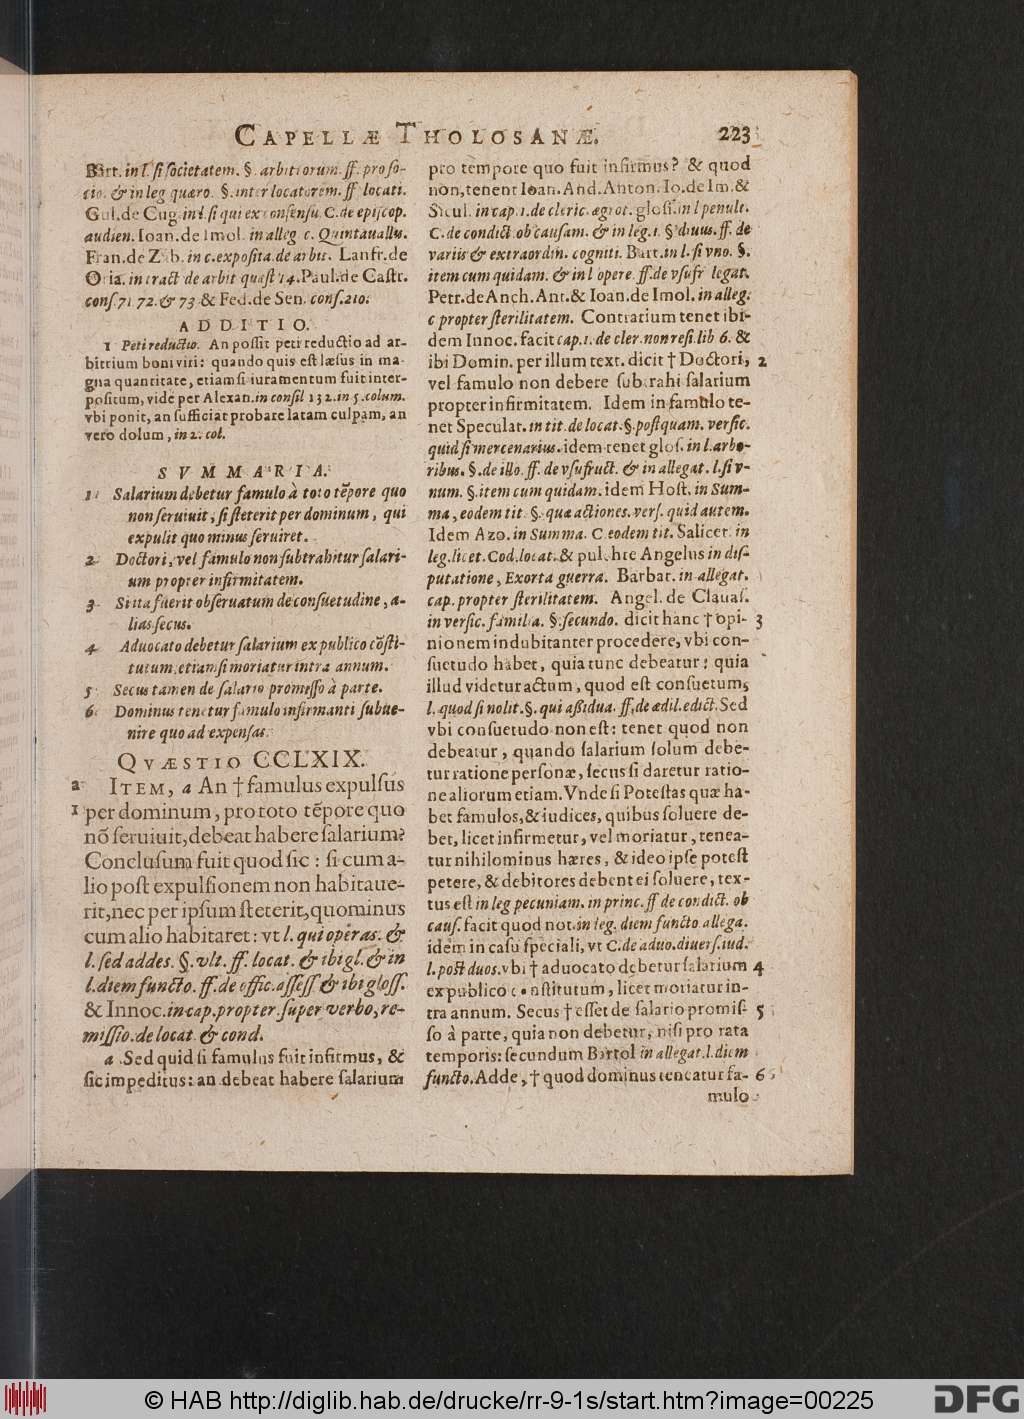 CAPELLÆ THOLOSANÆ. 223
Bart. in l. si societatem. §. arbitrorum. ff. pro so-
cio. & in leg quæro. §. inter locatorem. ff locati.
Gul. de Cug. in l. si qui ex consensu. C. de episcop.
audien. Ioan. de Imol. in alleg. c. Quintauallis.
Fran. de Zab. in c. exposita. de arbit. Lanfr. de
Oria. in tract de arbit quæst 14. Paul. de Castr.
cons. 71 72. & 73 & Fed. de Sen. cons. 210.
ADDITIO.
1 Peti reductio. An possit peti reductio ad ar-
bitrium boni viri: quando quis est læsus in ma-
gna quantitate, etiam si iuramentum fuit inter-
positum, vide per Alexan. in consil 132. in 5. colum.
vbi ponit, an sufficiat probare latam culpam, an
vero dolum, in 2. col.
SVMMARIA.
1 Salarium debetur famulo à toto tẽpore quo
non seruiuit, si steterit per dominum, qui
expulit quo minus seruiret.
2 Doctori, vel famulo non subtrahitur salari-
um propter infirmitatem.
3 Si ita fuerit obseruatum de consuetudine, a-
lias secus.
4 Aduocato debetur salarium ex publico cõsti-
tutum, etiamsi moriatur intra annum.
5 Secus tamen de salario promesso à parte.
6 Dominus tenetur famulo infirmanti subue-
nire quo ad expensas.
QVÆSTIO CCLXIX.
a ITEM, a An † famulus expulsus
1 per dominum, pro toto tẽpore quo
nõ seruiuit, debeat habere salarium?
Conclusum fuit quod sic: si cum a-
lio post expulsionem non habitaue-
rit, nec per ipsum steterit, quominus
cum alio habitaret: vt l. qui operas. &
l. sed addes. §. vlt. ff. locat. & ibi gl. & in
l. diem functo. ff. de offic. assess. & ibi gloss.
& Innoc. in cap. propter. super verbo, re-
missio. de locat. & cond.
a Sed quid si famulus fuit infirmus, &
sic impeditus: an debeat habere salarium
pro tempore quo fuit infirmus? & quod
non, tenent Ioan. And. Anton. Io. de Im. &
Sicul. in cap. 1. de cleric. ægrot. glos. in l penult.
C. de condict. ob causam. & in leg. 1. § diuus. ff. de
variis & extraordin. cogniti. Bart. in l. si vno. §.
item cum quidam. & in l opere. ff. de vsufr legat.
Petr. de Anch. Ant. & Ioan. de Imol. in alleg.
c propter sterilitatem. Contrarium tenet ibi-
dem Innoc. facit cap. 1. de cler. non resi. lib 6. &
ibi Domin. per illum text. dicit † Doctori, 2
vel famulo non debere subtrahi salarium
propter infirmitatem. Idem in famulo te-
net Speculat. in tit. de locat. §. postquam. versic.
quid si mercenarius. idem tenet glos. in l. arbo-
ribus. §. de illo. ff. de vsufruct. & in allegat. l. si v-
num. §. item cum quidam. idem Host. in Sum-
ma, eodem tit. §. quæ actiones. vers. quid autem.
Idem Azo. in Summa. C eodem tit. Salicet. in
leg. licet. Cod. locat. & pulchre Angelus in dis-
putatione, Exorta guerra. Barbat. in allegat.
cap. propter sterilitatem. Angel. de Clauas.
in versic. familia. §. secundo. dicit hanc † opi- 3
nionem indubitanter procedere, vbi con-
suetudo habet, quia tunc debeatur: quia
illud videtur actum, quod est consuetum,
l. quod si nolit. §. qui assidua. ff. de ædil. edict. Sed
vbi consuetudo non est: tenet quod non
debeatur, quando salarium solum debe-
tur ratione personæ, secus si daretur ratio-
ne aliorum etiam. Vnde si Potestas quæ ha-
bet famulos, & iudices, quibus soluere de-
bet, licet infirmetur, vel moriatur, tenea-
tur nihilominus hæres, & ideo ipse potest
petere, & debitores debent ei soluere, tex-
tus est in leg pecuniam. in princ. ff de condict. ob
caus. facit quod not. in leg. diem functo allega.
idem in casu speciali, vt C. de aduo. diuers. iud.
l. post duos. vbi † aduocato debetur salarium 4
ex publico constitutum, licet moriatur in-
tra annum. Secus † esset de salario promis- 5
so à parte, quia non debetur, nisi pro rata
temporis: secundum Bartol in allegat. l. diem
functo. Adde, † quod dominus teneatur fa- 6
mulo
© HAB http://diglib.hab.de/drucke/rr-9-1s/start.htm?image=00225
DFG